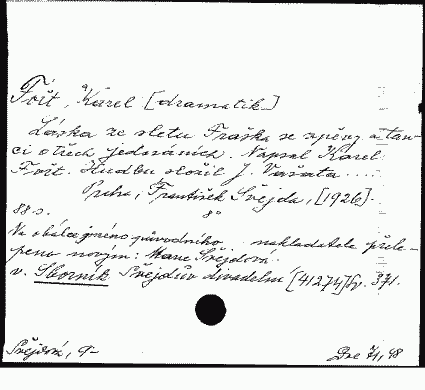 Fořt, Karel [dramatik]
Láska ze sletu. Fraška se zpěvy a tan-
ci o třech jednáních. Napsal Karel
Fořt. Hudbu složil J. Vávata ....
Praha, František Švejda, [1926].
88 s. 8°
Na obálce jméno původního nakladatele přele-
peno novým: Marie Švejdová.
v. Sborník Švejdův divadelní [41274] Sv. 371.
Švejdová, 9-